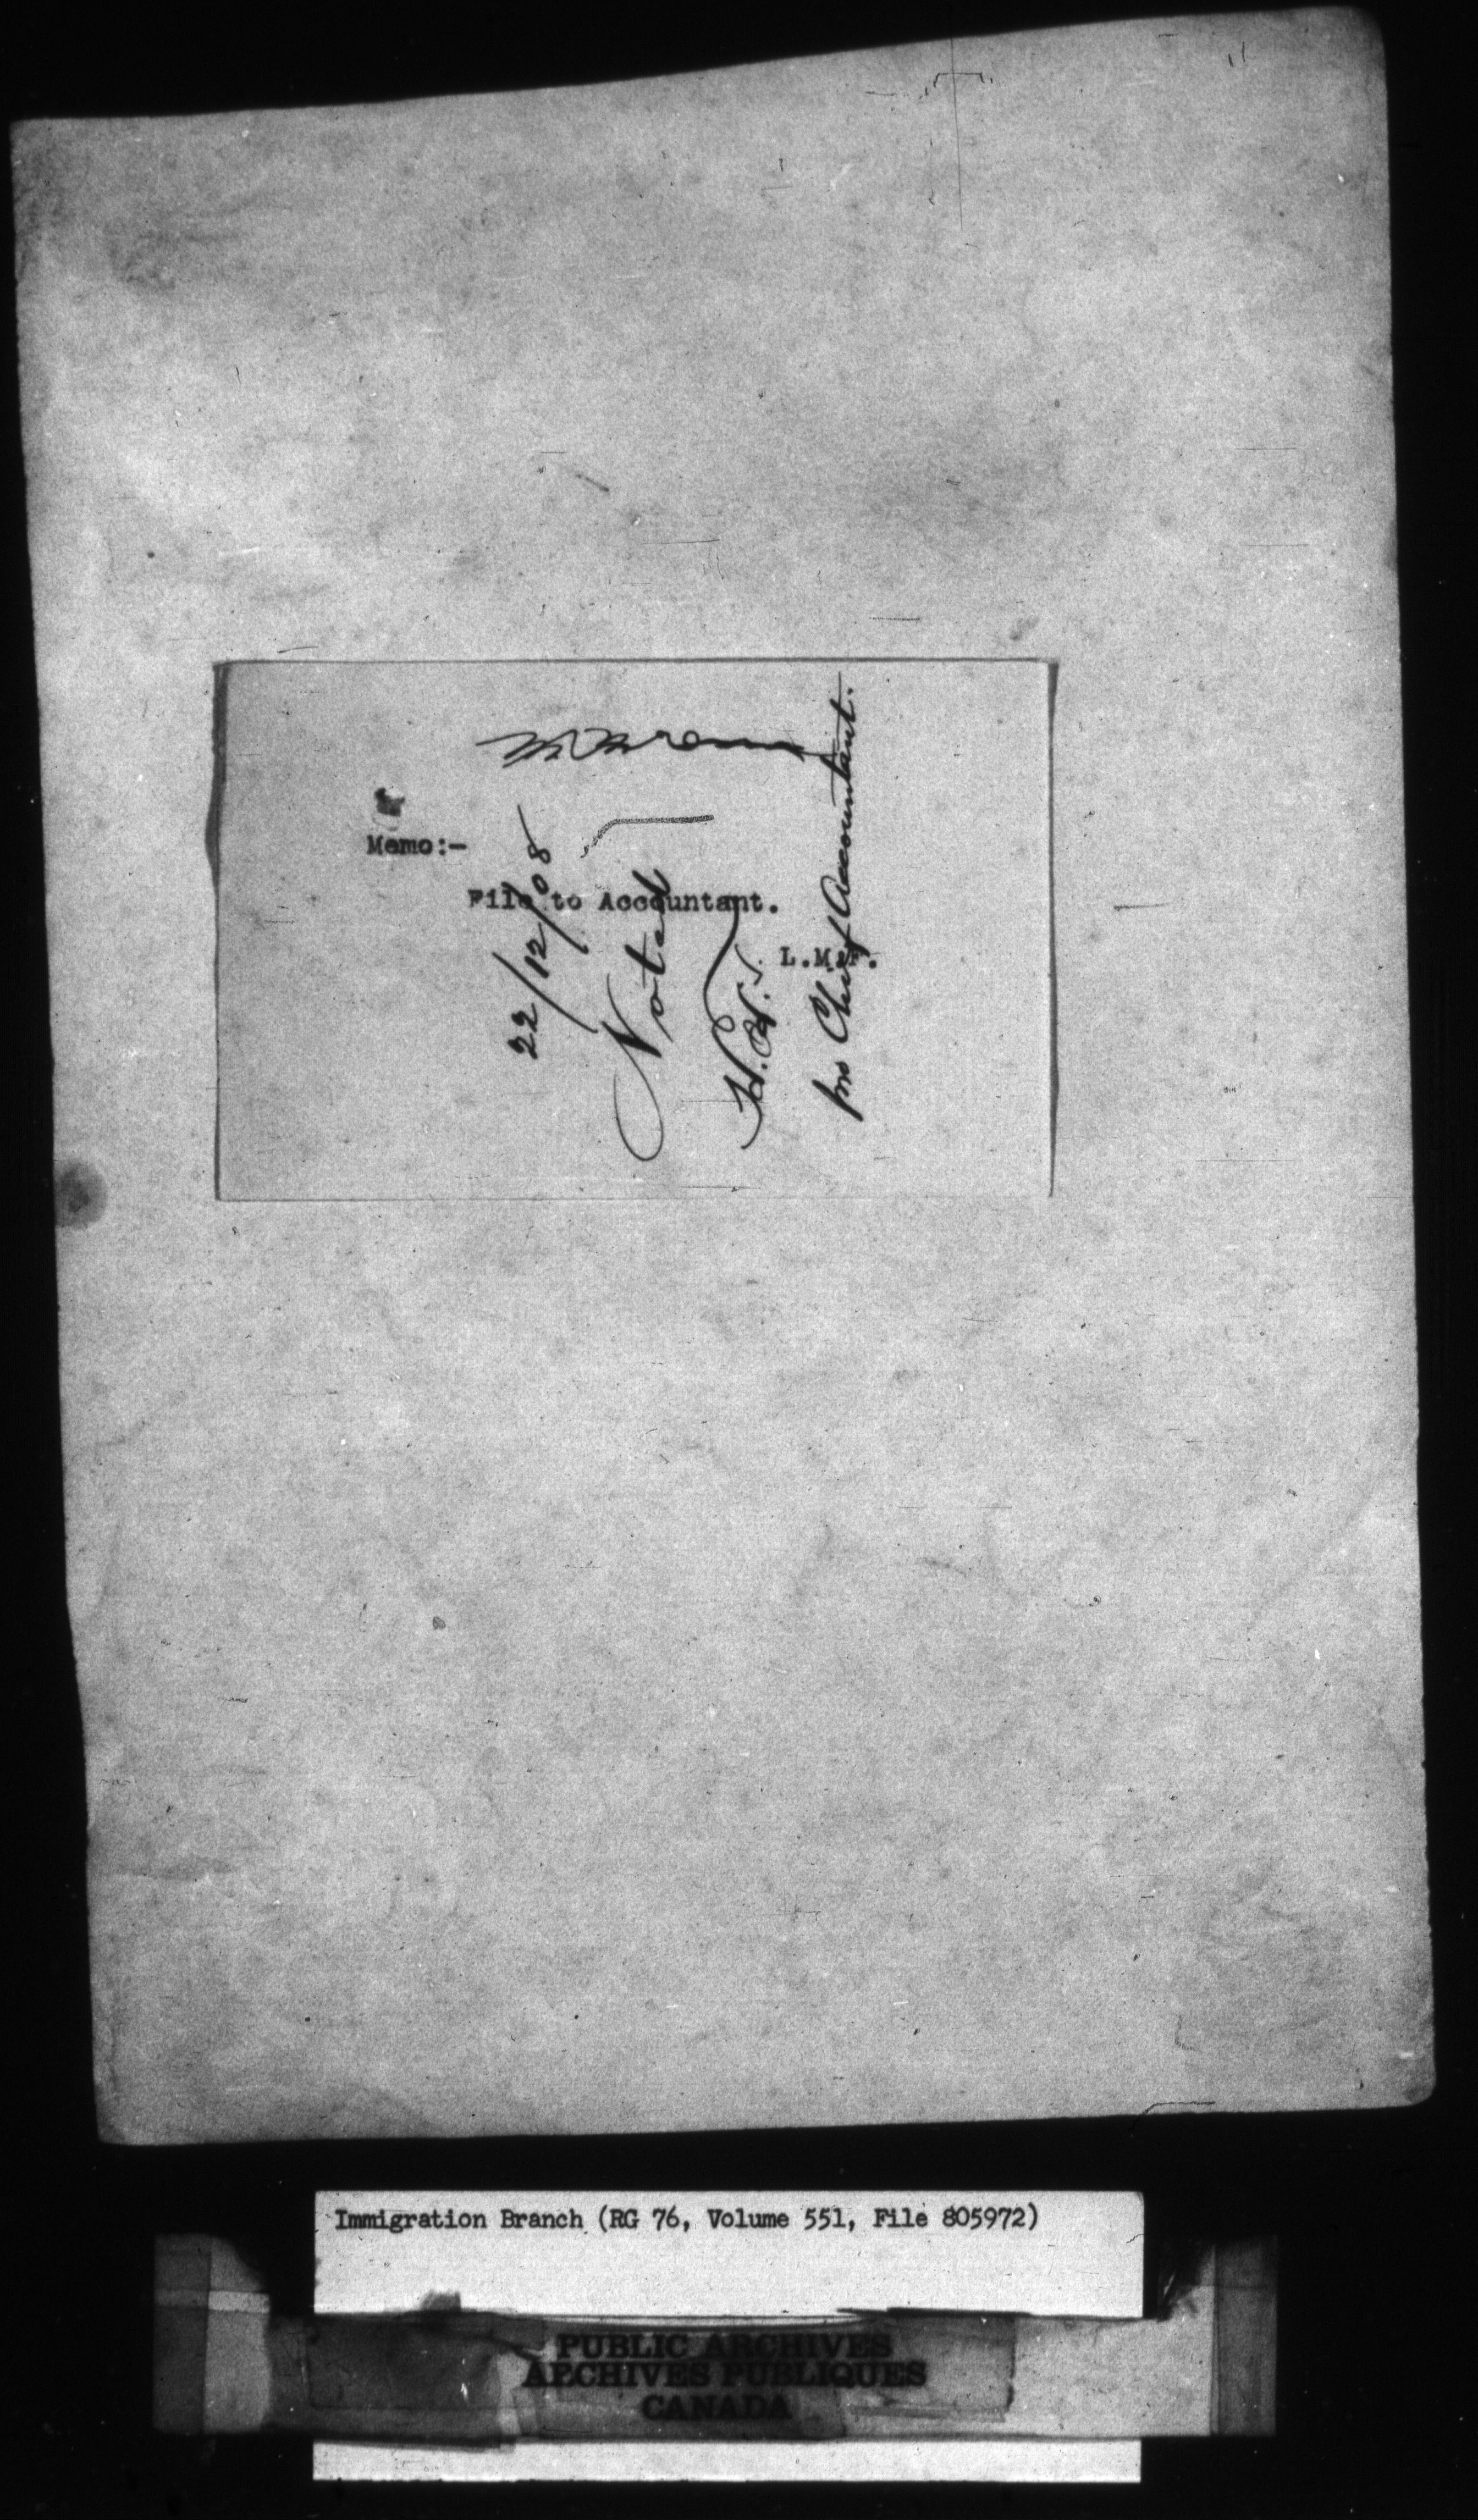 Memo:-
File to Accountant.
L.M.F.
22/12/08
Noted
pro Chief Accountant.
Immigration Branch (RG 76, Volume 551, File 805972)
PUBLIC ARCHIVES
ARCHIVES PUBLIQUES
CANADA